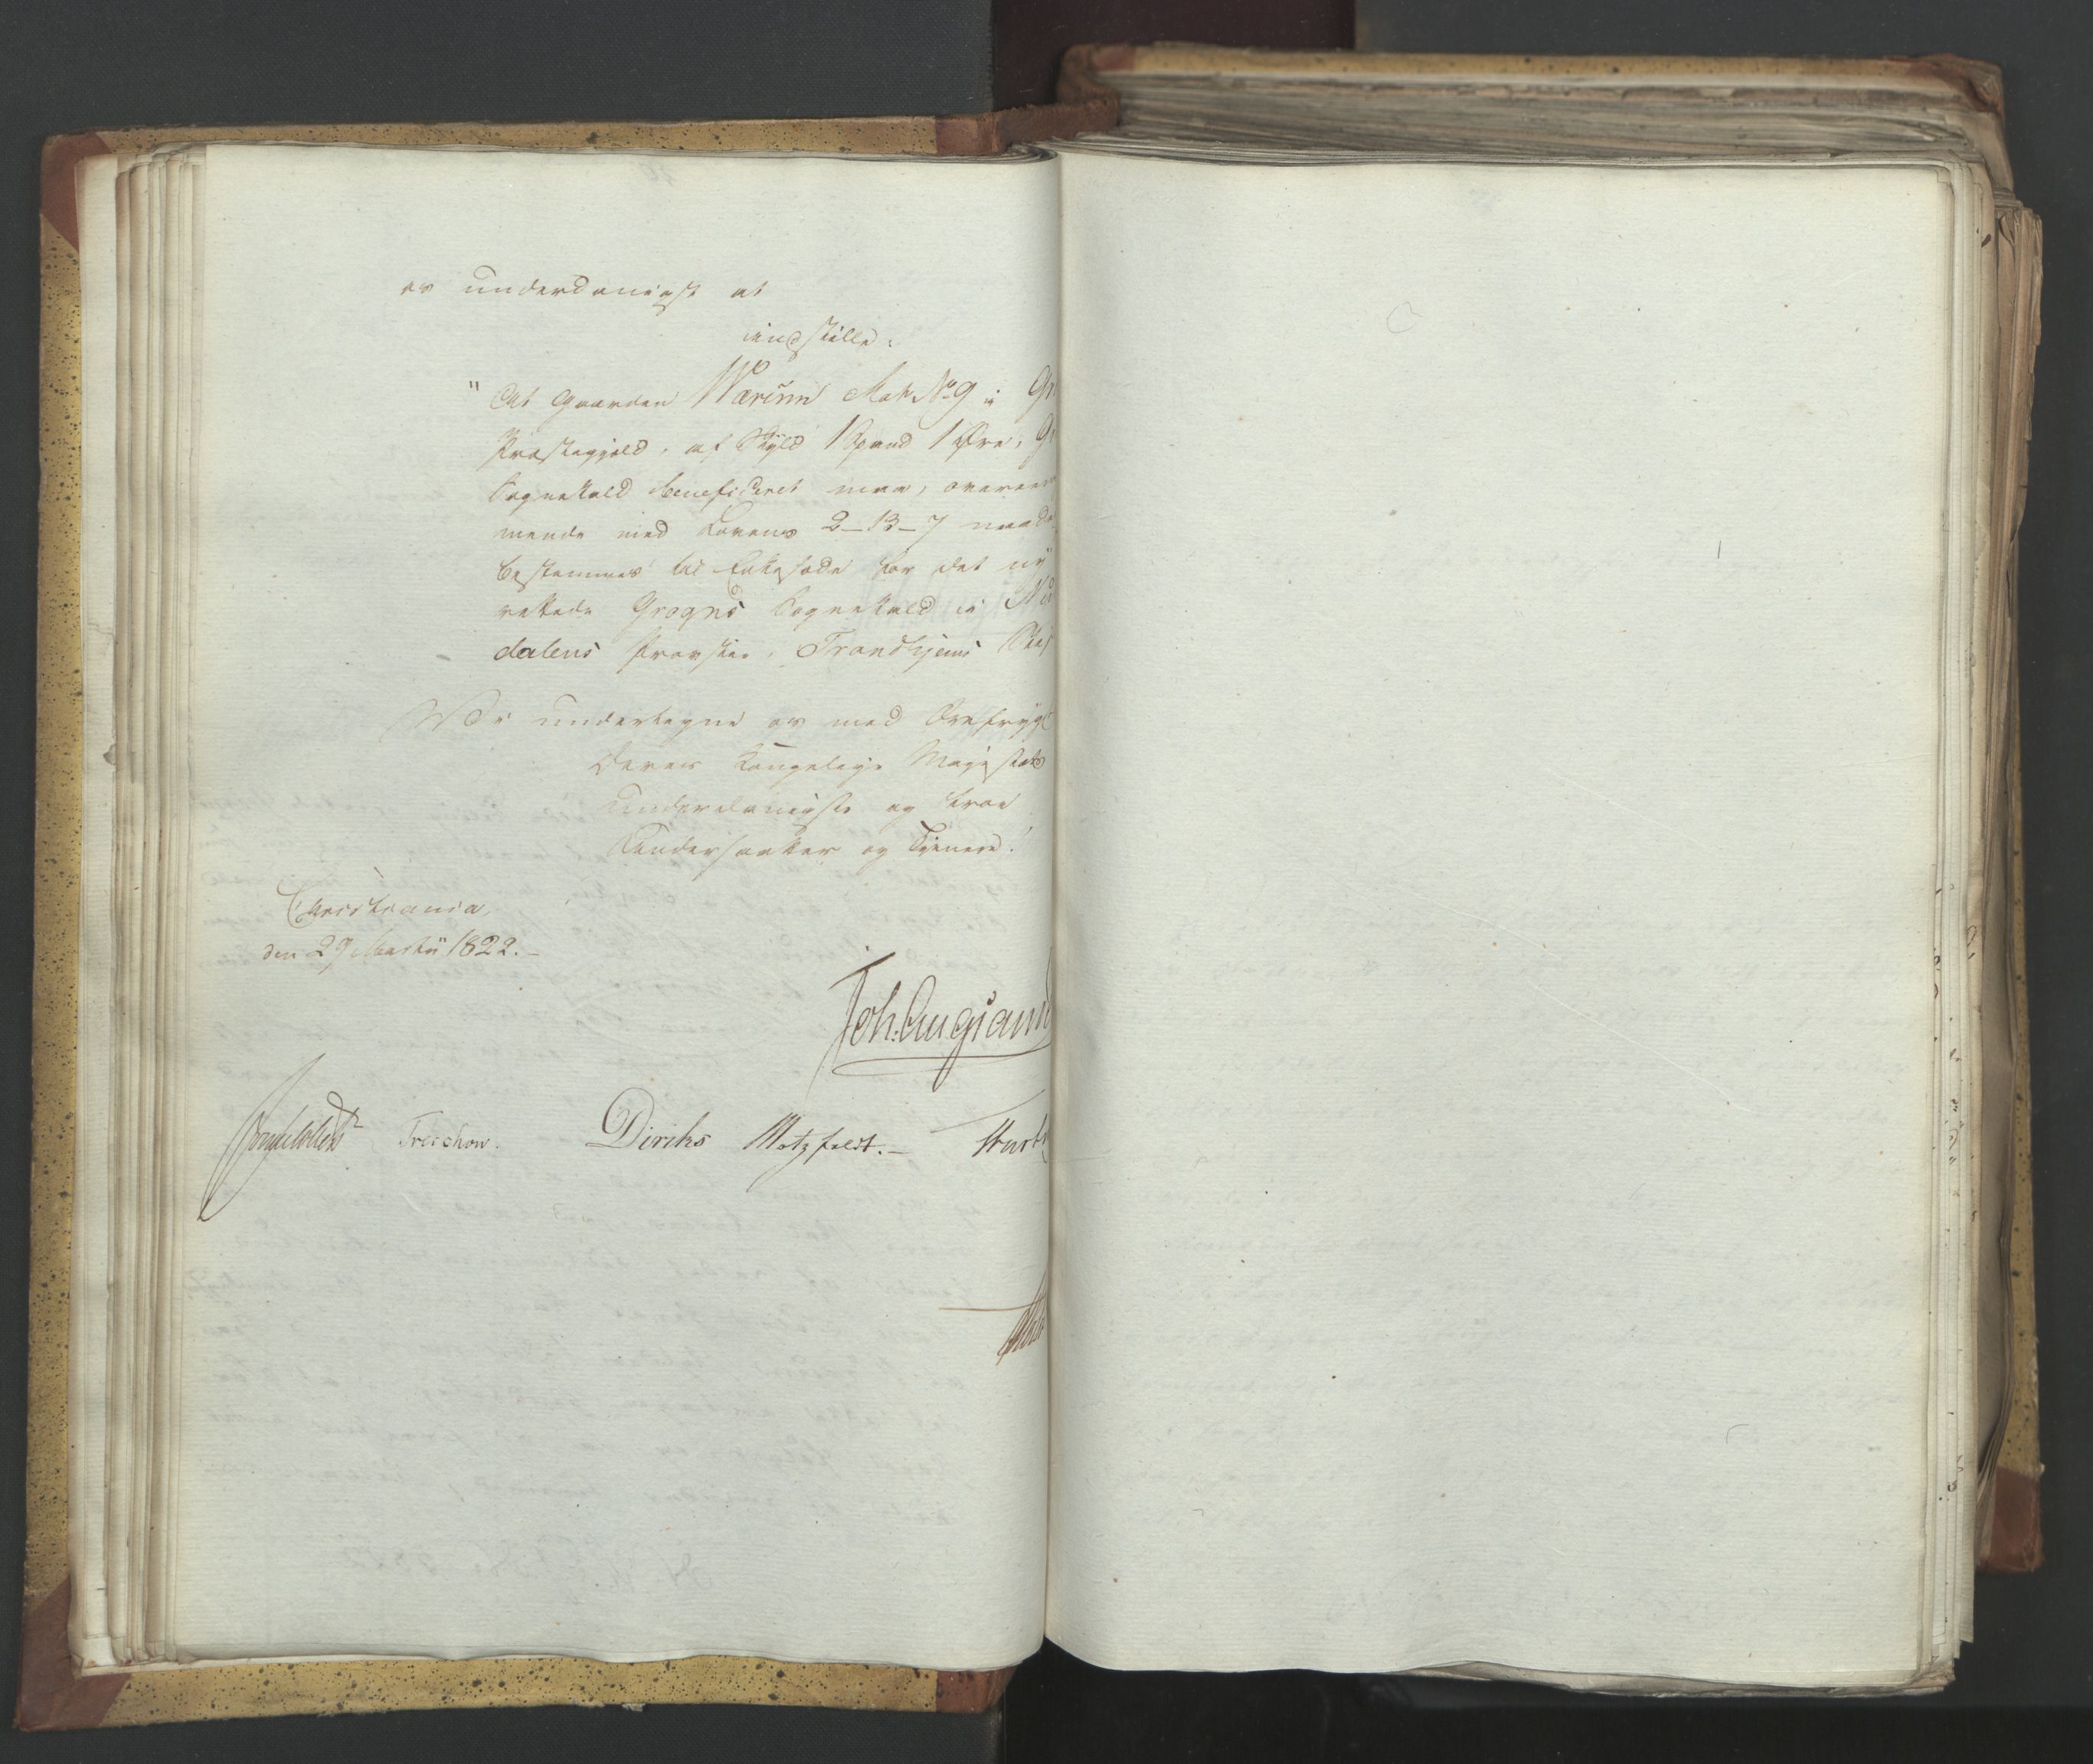 os underdanigst at
indstille:
"At Gaarden Værüm Mat. No 9 i Gr
Præstegjeld, af Skyld 1 Spand 1 Øre, Gr
Sognekald beneficeret maa, overeens
mende med Lovens 2-13-7 naad
bestemmes til Enkesæde for det ny
rettede Grogns Sognekald i Nu
dalens Provstie, Trondhjems Stif
Vi undertegne os med Ærefrygt
Deres Kongelige Majestæts
underdanigste og troe
Undersaatter og Tjenere!
Christiania,
den 29 Martii 1822.-
Joh. Aug: Sand
Sommerhielm Treschow. Diriks Motzfeldt.- Hart